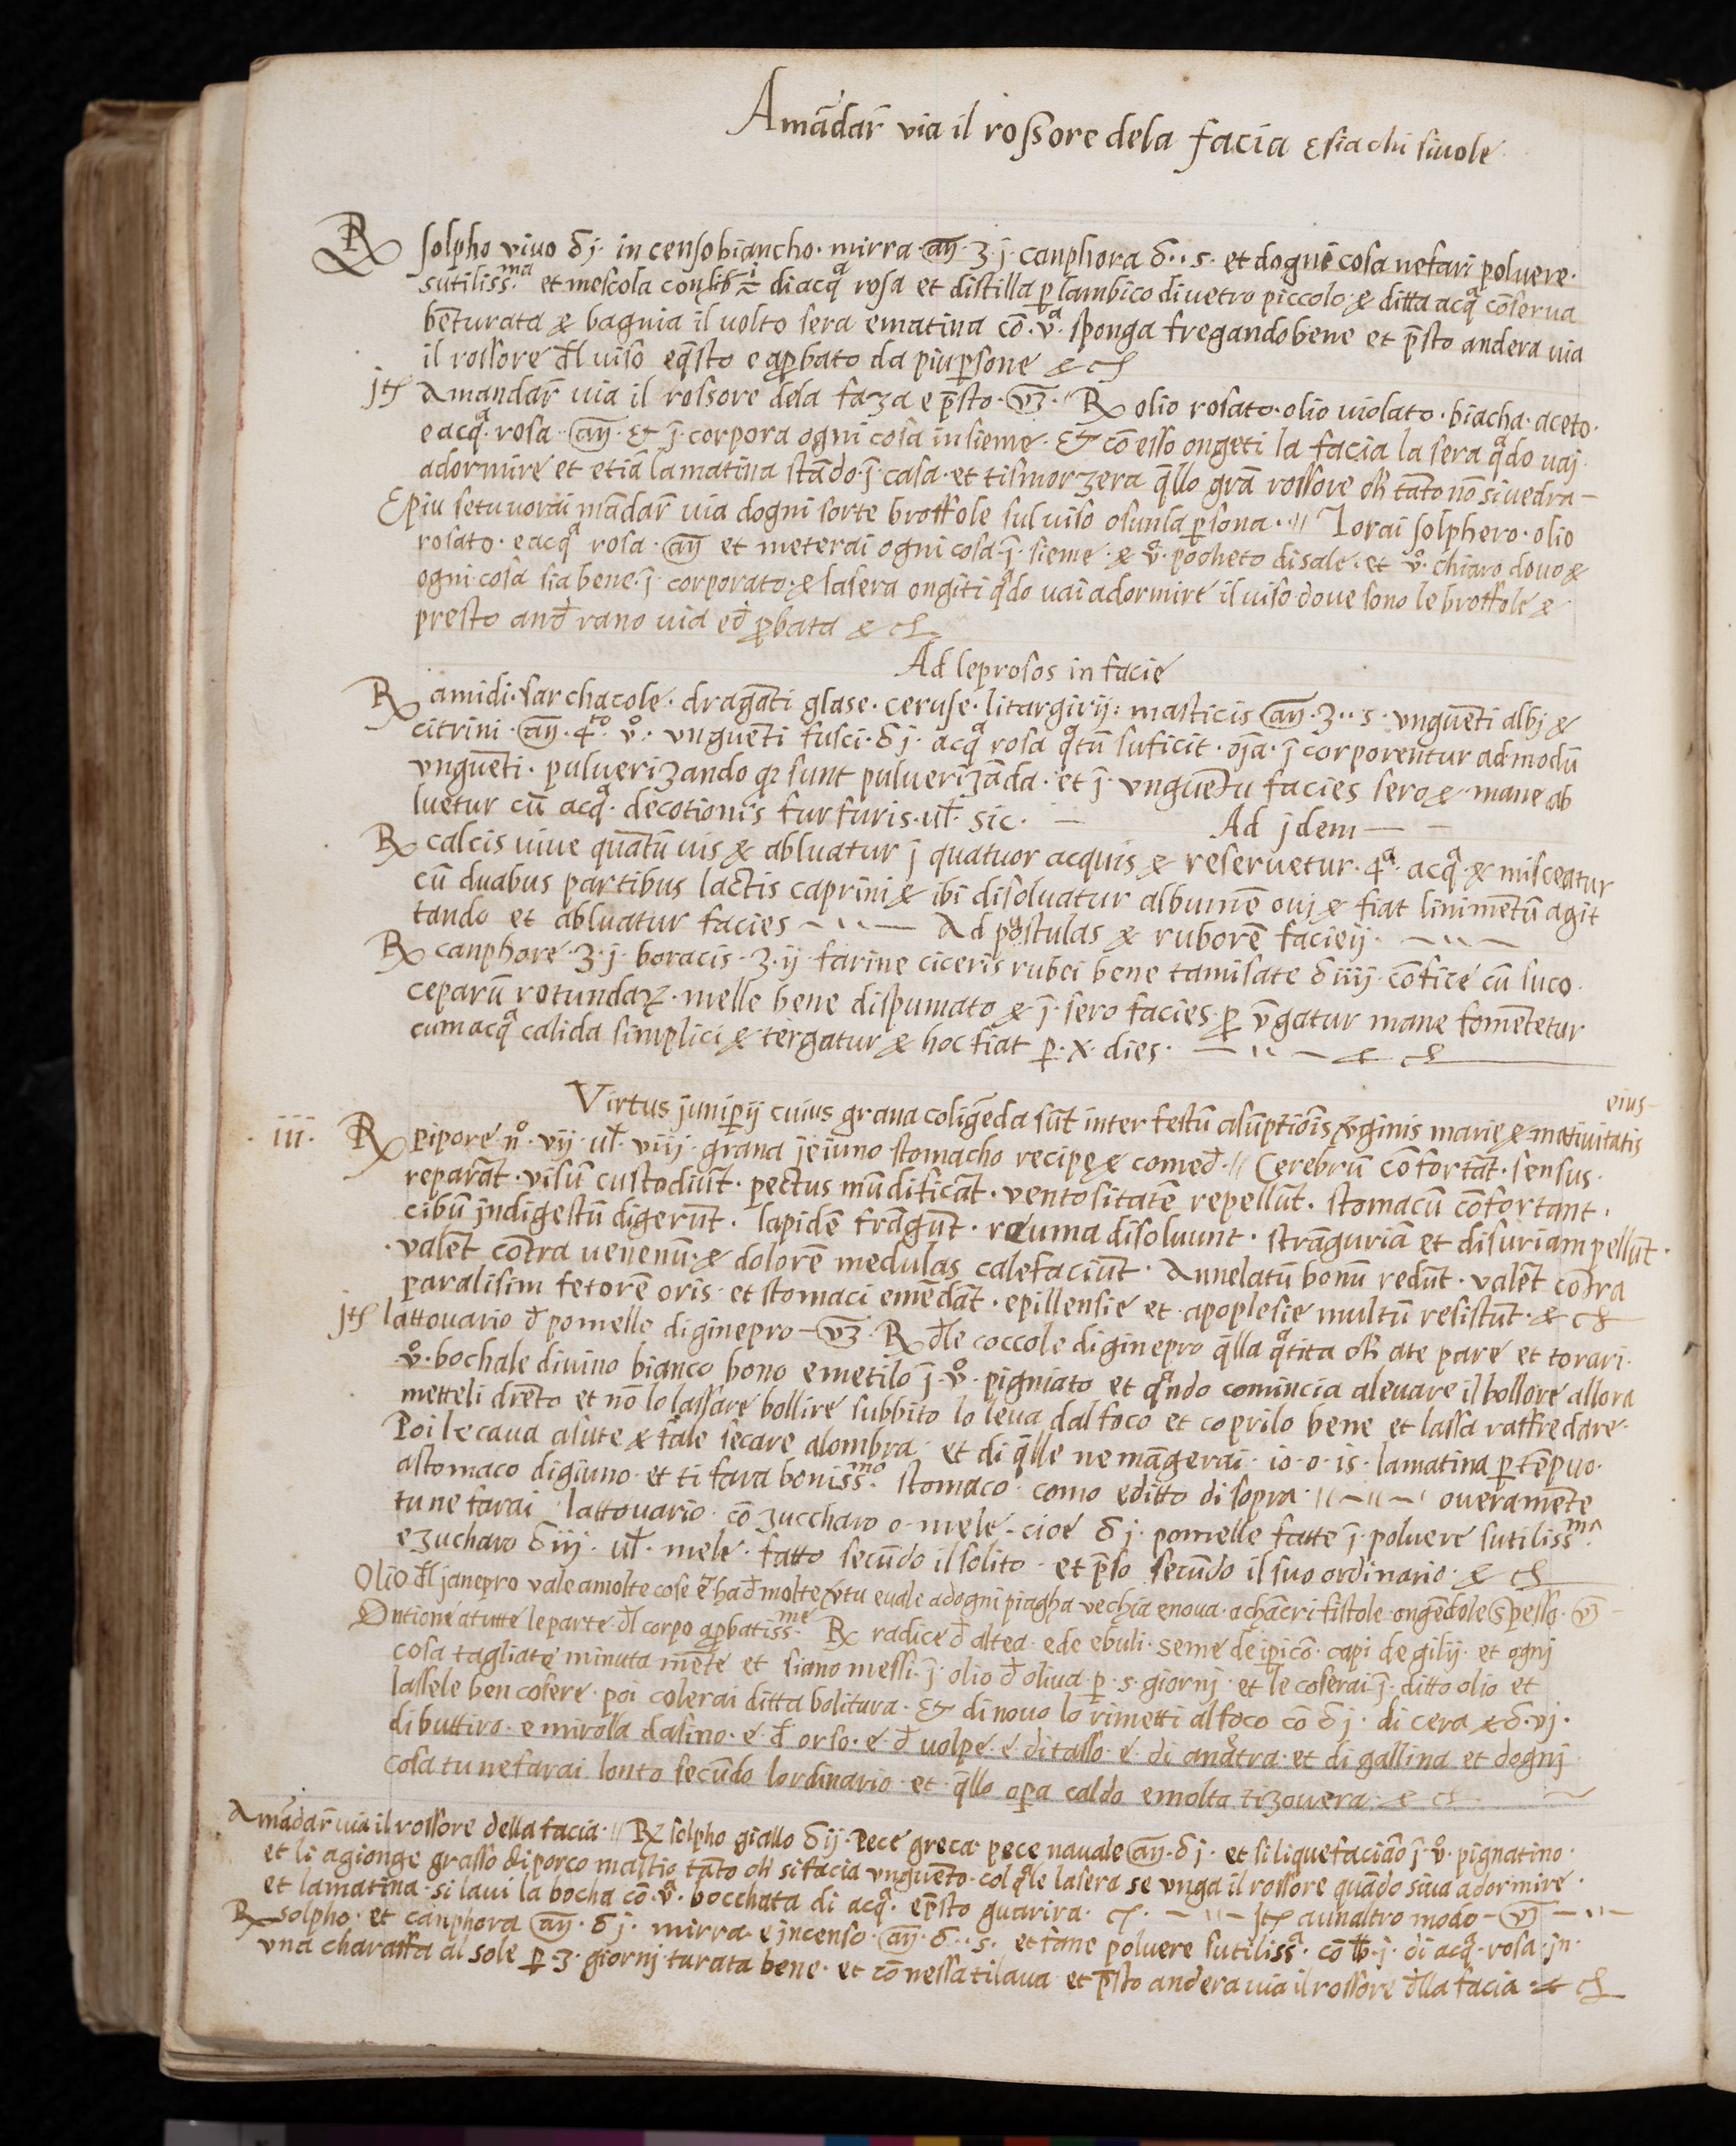 Amādar̄ via il rossore dela facia e sia chi si uole
℞ solpho viuo δ j · incenso biancho · mirra · añ · ʒ · j · canphora δ ·· s · et dogni cosa ne fari poluere ·
sutiliss.ᵐᵃ et mescola con di acqᵃ rosa et distilla ꝑ lambico di uetro piccolo · & ditta acqᵃ cōserua
benturata & bagnia il uolto sera e matina cō · vᵃ · sponga fregando bene et p̄sto andera uia
il rossore đl uiso e q̄sto e aꝓbato da piu ꝑsone &
jtꝭ Amandar̄ uia il rossore dela faza e p̄sto · ℞ olio rosato · olio uiolato · biacha · aceto ·
e acqᵃ · rosa · añ · & ī · corpora ogni cosa insieme · Et cō esso ongeti la facia la sera qᵃdo uaj ·
adormire et etiā la matina stādo · ī · casa · et ti smorzera q̄llo grā rossore cħ tāto nō si uedra —
E piu se tu uorai mādar̄ uia dogni sorte broffole sul uiso o su nla ꝑsona · // Torai solphero · olio
rosato · e acqᵃ rosa · añ et meterai ogni cosa · ī · sieme · & v° · pocheto di sale · et v° · chiaro douo &
ogni cosa sia bene · ī · corporato · & la sera ongiti qᵃdo uai adormire il uiso doue sono le broffole &
presto anđrano uia eđ ꝓbata &
Ad leprosos in facie
℞ amidi · sarchacole · draganti glase · ceruse · litargirij · masticis añ · ʒ ·· s · vnguēti albj &
citrini · añ · qʳᵒ · v° · vnguēti fusci · δ j · acqᵃ rosa qᵃtū suficit · oīa · ī corporentur ad modū
vnguēti · puluerizando q̄ sunt pulueriẓāda · et ī · vnguētu facies sero & mane ab
luetur cū acqᵃ · decotionis furfuris · uł · sic · — Ad jdem — —
℞ calcis uiue quātū uis & abluatur j quatuor acquis & reseruetur · qᵃ · acqᵃ · & misceatur
cū duabus partibus lactis caprini & ibi disoluatur albumē ouj & fiat linimētū agit
tando et abluatur facies — Ad postulas & ruborē facieij ·
℞ canphore · ʒ · j · boracis · ʒ · ij · farine ciceris rubei bene tamisate δ iiij · cōfice cū suco ·
ceparū rotundaꝝ · melle bene dispumato & ī · sero facies · ꝑ v̄gatur mane fomētetur
cum acqᵃ calida simplici & tergatur & hoc fiat ꝑ · x · dies · — &
Virtus juniꝑij cuius grana coligēda sūt inter festū asūptiōis v̄ginis marie & natiuitatis eius
· iii · ℞ pipore n° · vij · uł · viij · grana jeiuno stomacho recipe & comeđ · // Cerebrū cōfortāt · sensus ·
reparāt · visū custodiūt · pectus mūdificāt · ventositatē repellūt · stomacū cōfortant ·
cibū jndigestū digerūt · lapidē frāgūt · reuma disoluunt · strāguriā et disuriam pellūt ·
· valēt cōtra uenenū · & dolorē medulas calefaciūt · Annelatū bonū redūt · valēt cōtra
paralisim fetorē oris · et stomaci emēdāt · epillensie et · apoplesie multū resistūt · &
jtꝭ lattouario đ pomelle di ginepro — · ℞ đle coccole di ginepro q̄lla qᵃtita cħ a te pare et torari ·
· v° · bochale di uino bianco bono e metilo ī · v° · pigniato et qᵃndo comincia a leuare il bollore allora
metteli drēto et nō lo lassare bollire subbito lo leua dal foco et coprilo bene et lassa raffredare ·
Poi le caua asute & fāle secare alombra · et di q̄lle ne māgerai · io · o · is · la matina ꝑ tēpuo ·
a stomaco digiuno · et ti fara boniss.ᵐᵒ stomaco · como e ditto di sopra · // — oueramēte
tu ne farai · lattouario · cō zuccharo o · mele · cioe δ j · pomelle fatte ī · poluere sutiliss.ᵐᵃ
e zucharo δ iij · uł · mele · fatto secūdo il solito · et p̄so secūdo il suo ordinario · &
Olio đl janepro uale a molte cose e ha đ molte v̄tu e uale ad ogni piagha vechia e noua · a chācri fistole ongēdole spesso ·
Ontione a tutte le parte đl corpo aꝓbatiss.ᵐᵉ ℞ radice đ altea · e de ebuli · seme de iꝑicō · capi de gilij · et ognj
cosa tagliate minuta mēte et siano messi · ī · olio đ oliua · ꝑ · s · giornj · et le coserai · ī · ditto olio et
lassele ben cosere · poi colerai ditta bolitura · Et di nouo lo rimetti al foco cō δ j · di cera & δ · vj ·
di buttiro · e mirolla dasino · e · đ orso · e · đ uolpe · e di tasso · e · di anatra · et di gallina et dognj
cosa tu ne farai lonto secūdo lordinario · et q̄llo oꝑa caldo e molto ti zouera · &
Amādar̄ uia il rossore della facia · // ℞ solpho giallo δ ij · Pece greca · pece nauale añ · δ j · et si liquefaciāo ī · v° · pignatino ·
et li agionge grasso di porco mastio tāto cħ si facia vnguēto · col qᵃle la sera se vnga il rossore quādo si ua adormire ·
et la matina · si laui la bocha cō · vᵃ · bocchata di acqᵃ · e p̄sto guarira · — jtꝭ a un altro modo —
℞ solpho · et cānphora añ · δ j · mirra · e jncenso · añ · δ ·· s · et fane poluere sutilissᵃ · cō ℔ · j · di acqᵃ · rosa · jn ·
vna charaffa al sole ꝑ · 3 · giornj · turata bene · et cō nessa ti laua · et p̄sto andera uia il rossore đlla facia · &